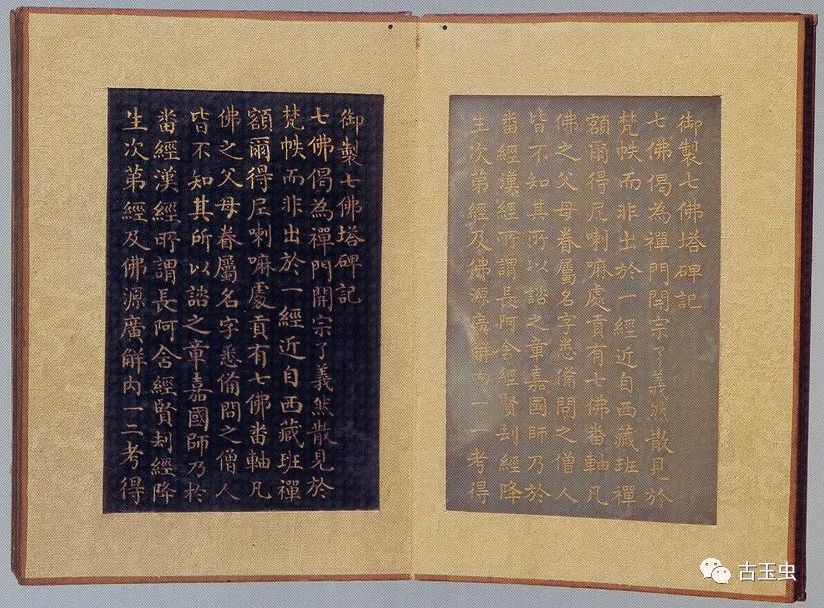 御製七佛塔碑記
七佛偈為禪門開宗了義然散見於
梵帙而非出於一經近自西藏班禪
額爾得尼喇嘛處貢有七佛畨軸凡
佛之父母眷屬名字悉備問之僧人
皆不知其所以諮之章嘉國師乃於
畨經漢經所謂長阿含經賢刦經降
生次第經及佛源廣觧內一一考得
御製七佛塔碑記
七佛偈為禪門開宗了義然散見於
梵帙而非出於一經近自西藏班禪
額爾得尼喇嘛處貢有七佛畨軸凡
佛之父母眷屬名字悉備問之僧人
皆不知其所以諮之章嘉國師乃於
畨經漢經所謂長阿含經賢刦經降
生次第經及佛源廣觧內一一考得
古玉虫